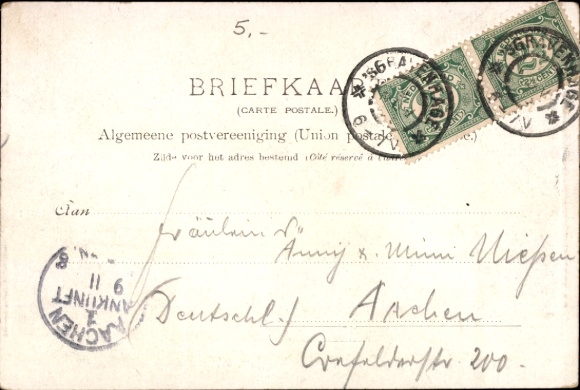 5,-
BRIEFKAA
(CARTE POSTALE.)
Algemeene postvereeniging (Union postale
Zijde voor het adres bestemd (Côté réservé à
'SGRAVENHAGE
'SGRAVENHAGE
Aan
Fräulein
Anny & Mimi Niessen
Deutschl.
Aachen
Crefelderstr 200.
AACHEN
1
ANKUNFT
9 11